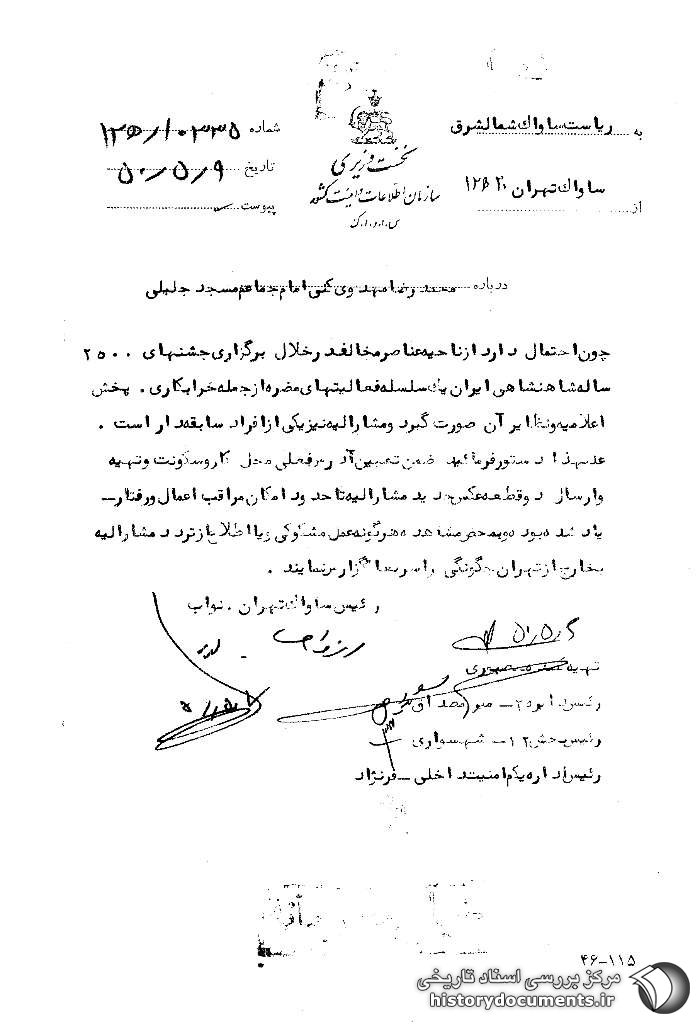 به ریاست ساواک شمالشرق
از ساواک تهران ۱۲۵۲۰
نخست وزیری
سازمان اطلاعات و امنیت کشور
س.ا.و.ا.ک
شماره ۱۲۵۱۰۳۳۵
تاریخ ۵۰/۵/۹
پیوست
درباره محمد رضا مهدوی کنی امام جماعت مسجد جلیلی
چون احتمال دارد از ناحیه عناصر مخالف در خلال برگزاری جشنهای ۲۵۰۰
ساله شاهنشاهی ایران یک سلسله فعالیتهای مضره از جمله خرابکاری . پخش
اعلامیه و نظایر آن صورت گیرد و مشارالیه نیز یکی از افراد سابقه دار است .
علیهذا دستور فرمائید ضمن تعیین آدرس فعلی محل کار و سکونت و تهیه
و ارسال دو قطعه عکس جدید مشارالیه تا حدود امکان مراقب اعمال و رفتار
یاد شده بوده و به محض مشاهده هرگونه عمل مشکوکی و یا اطلاع از تردد مشارالیه
بخارج از تهران چگونگی را سریعا گزارش نمایند .
رئیس ساواک تهران . نواب
۵۰/۵/۶
تهیه کننده
رئیس
رئیس بخش ۱۲ - شهسواری
رئیس اداره یکم امنیت داخلی - فرنژاد
۴۶-۱۱۵
مرکز بررسی اسناد تاریخی
historydocuments.ir